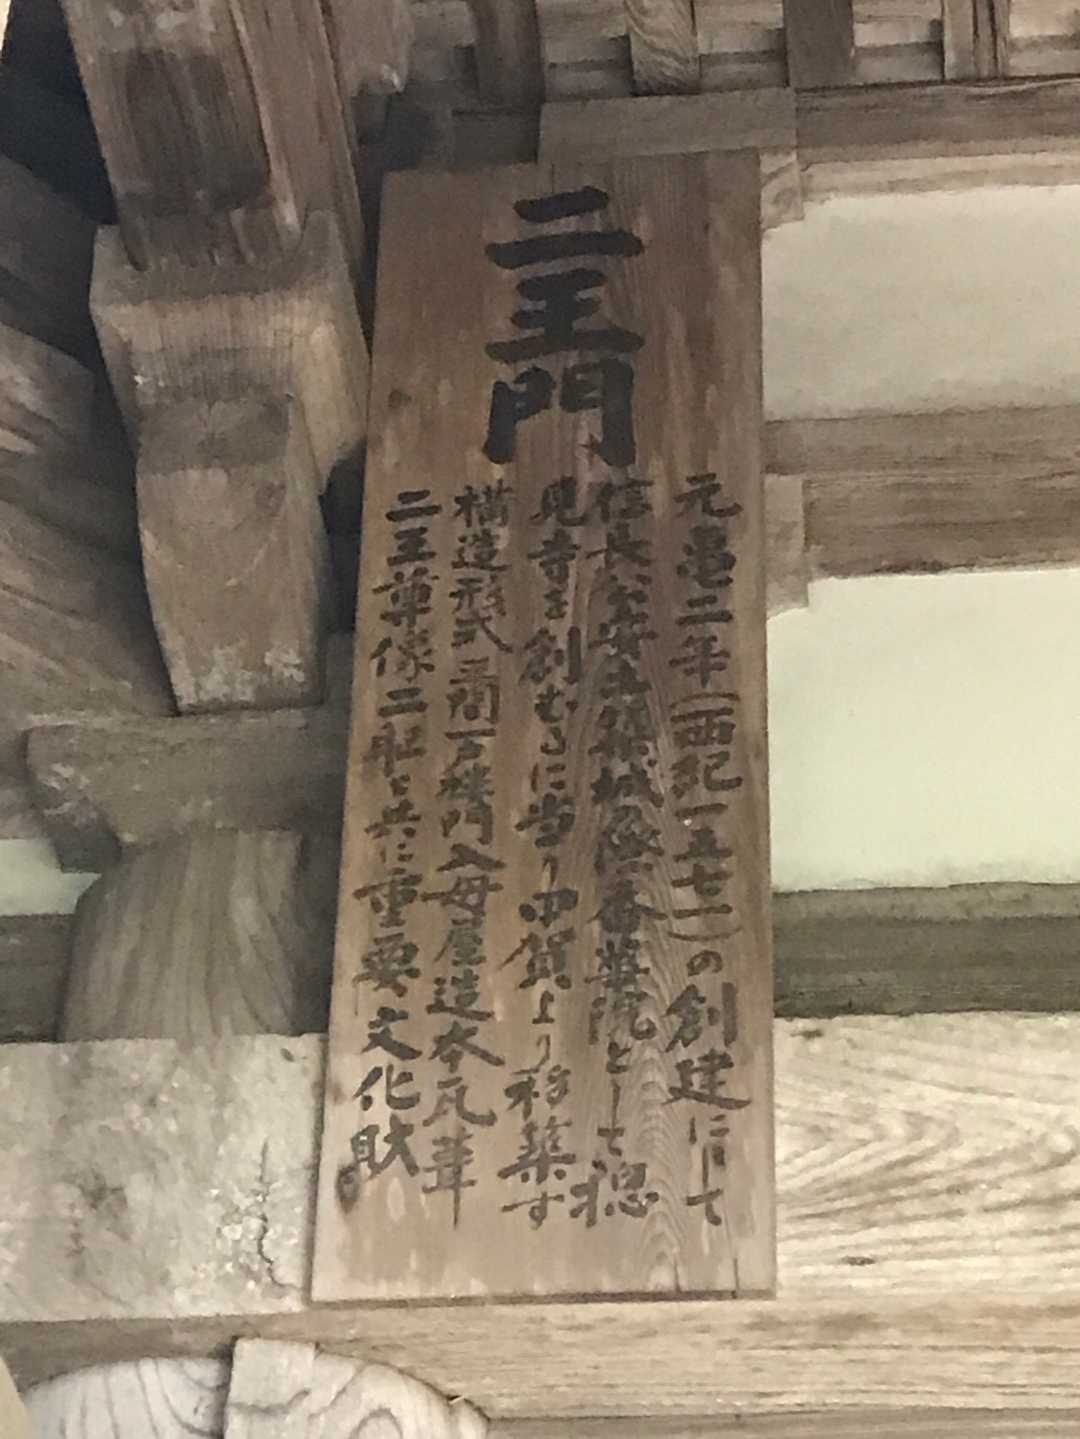 二王門
元亀二年(西紀一五七一)の創建にして
信長が安土築城の際香華院として摠
見寺を創むるに当り甲賀より移築す
構造形式 三間一戸楼門入母屋造本瓦葺
二王尊像二躯と共に重要文化財